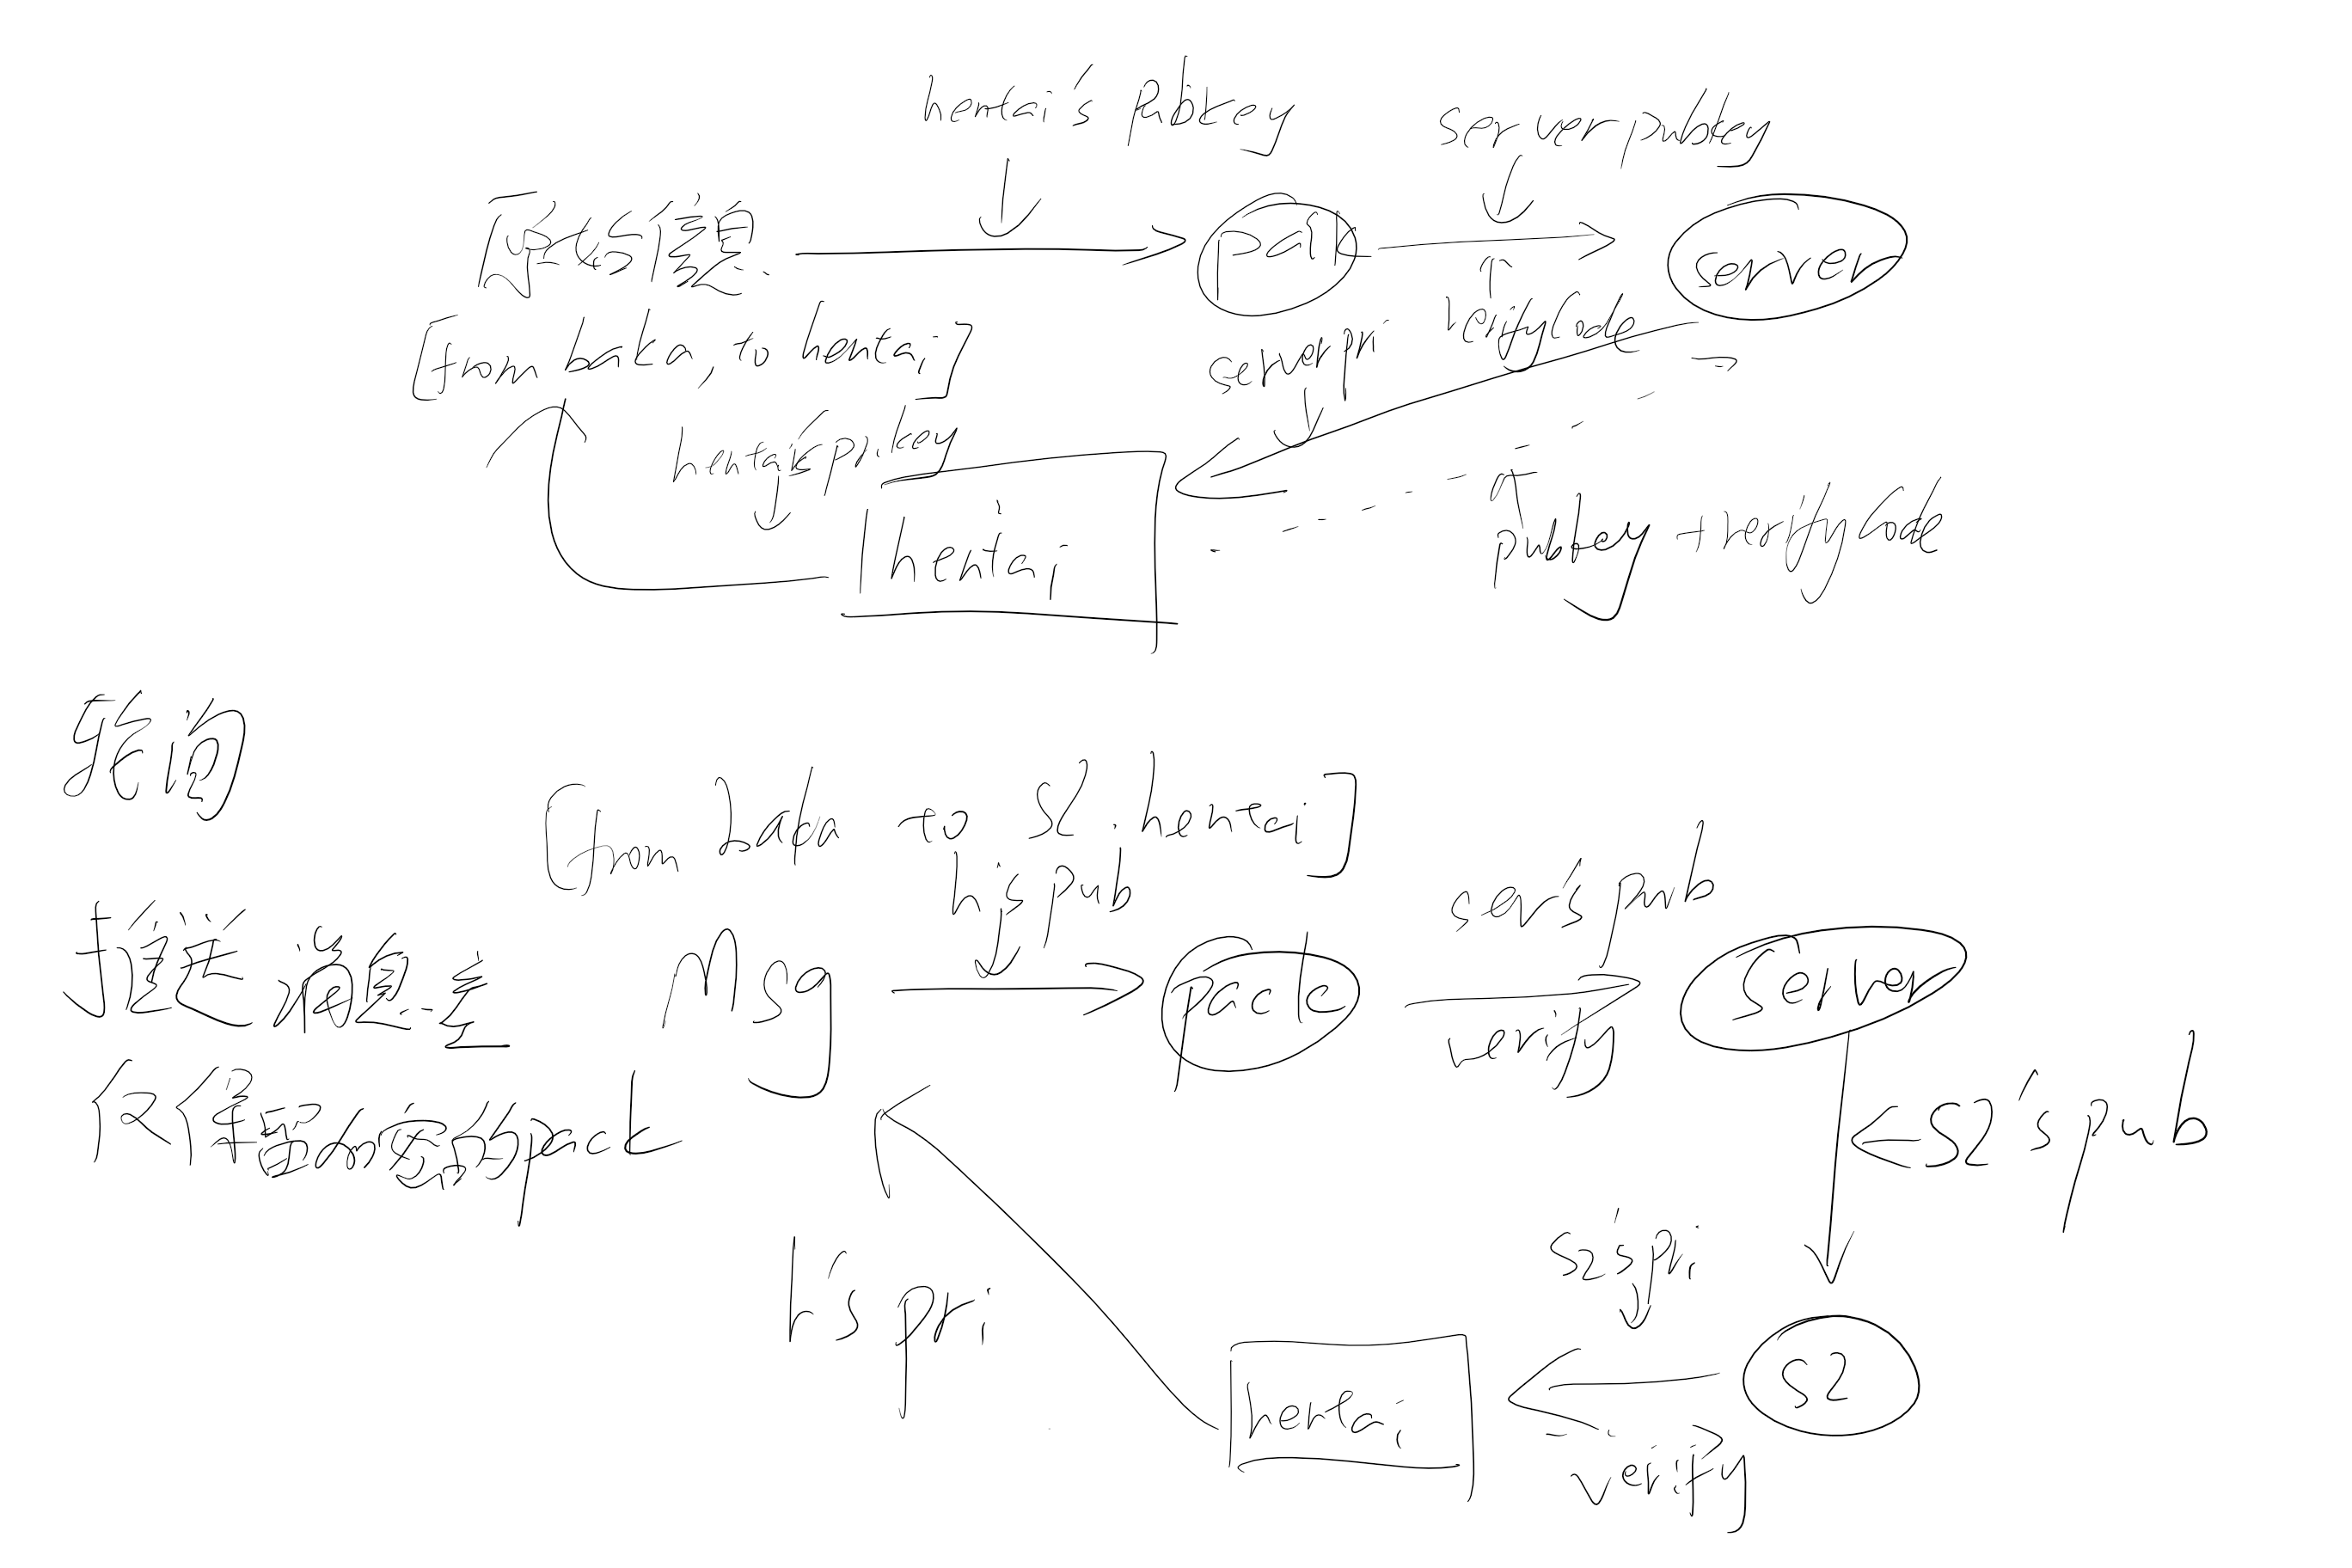 hentai's Pubkey
server pubkey
原始信息
pack
server
[from baka, to hentai]
server pri
verifyCode
hentai's pri key
hentai
pubkey + verifyCode
转向
[from baka to S2.hentai]
h's pub
ser's pub
推送消息差
Msg
pack
server
verify
仅保留加密的pack
S2's pub
S2's pri
h's pri
S2
hentai
verify